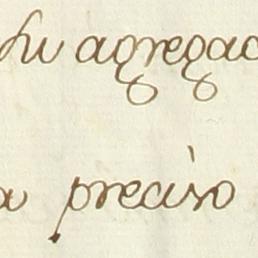 su agregac
a preciso